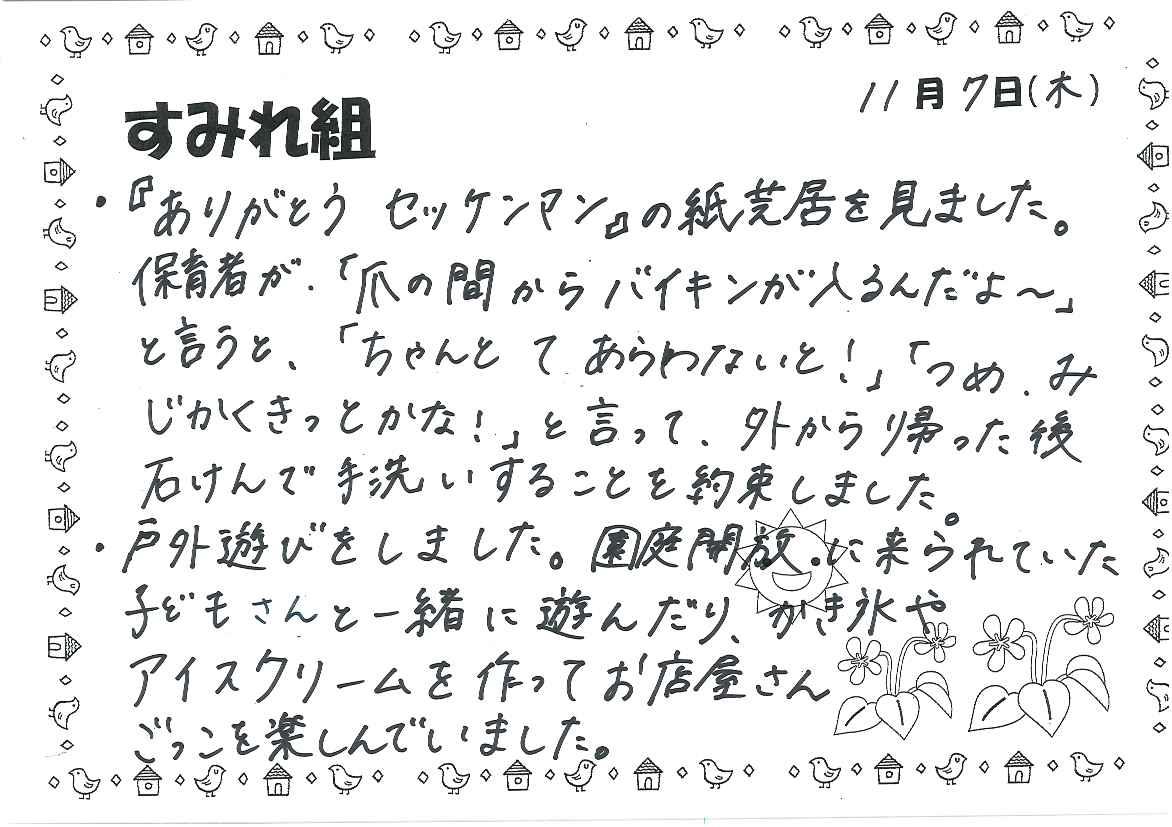 11月7日(木)
すみれ組
・『ありがとう セッケンマン』の紙芝居を見ました。
保育者が、「爪の間からバイキンが入るんだよ〜」
と言うと、「ちゃんと て あらわないと!」「つめ、み
じかくきっとかな!」と言って、外から帰った後
石けんで手洗いすることを約束しました。
・戸外遊びをしました。園庭開放に来られていた
子どもさんと一緒に遊んだり、かき氷や
アイスクリームを作ってお店屋さん
ごっこを楽しんでいました。